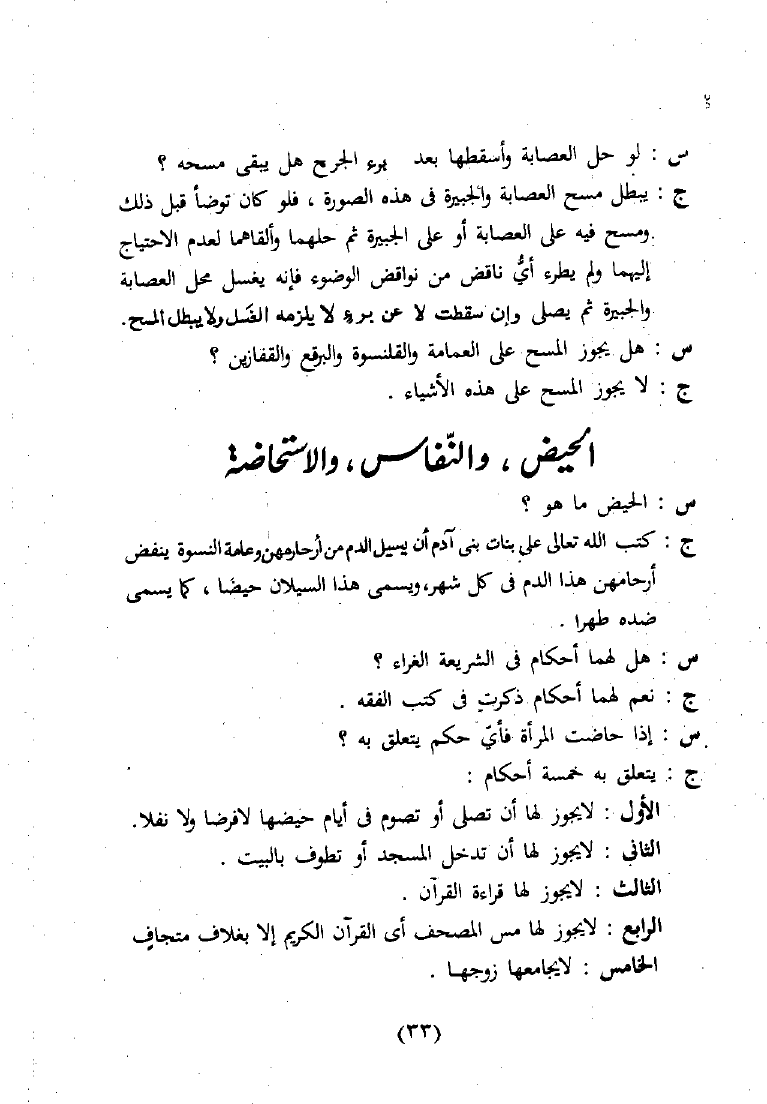 س : لو حل العصابة وأسقطها بعد برء الجرح هل يبقى مسحه ؟
ج : يبطل مسح العصابة والجبيرة فى هذه الصورة ، فلو كان توضأ قبل ذلك
ومسح فيه على العصابة أو على الجبيرة ثم حلهما وألقاهما لعدم الاحتياج
إليهما ولم يطرء أيُّ ناقض من نواقض الوضوء فإنه يغسل محل العصابة
والجبيرة ثم يصلى وإن سقطت لا عن برء لا يلزمه الغَسل ولا يبطل المسح.
س : هل يجوز المسح على العمامة والقلنسوة والبرقع والقفازين ؟
ج : لا يجوز المسح على هذه الأشياء .
الحيض ، والنّفاس ، والاستحاضة
س : الحيض ما هو ؟
ج : كتب الله تعالى على بنات بنى آدم أن يسيل الدم من أرحامهن وعامة النسوة ينفض
أرحامهن هذا الدم فى كل شهر، ويسمى هذا السيلان حيضا ، كما يسمى
ضده طهرا .
س : هل لهما أحكام فى الشريعة الغراء ؟
ج : نعم لهما أحكام ذكرت فى كتب الفقه .
س : إذا حاضت المرأة فأيّ حكم يتعلق به ؟
ج : يتعلق به خمسة أحكام :
الأول : لايجوز لها أن تصلى أو تصوم فى أيام حيضها لافرضا ولا نفلا.
الثانى : لايجوز لها أن تدخل المسجد أو تطوف بالبيت .
الثالث : لايجوز لها قراءة القرآن .
الرابع : لايجوز لها مس المصحف أى القرآن الكريم إلا بغلاف متجافٍ
الخامس : لايجامعها زوجها .
(٣٣)